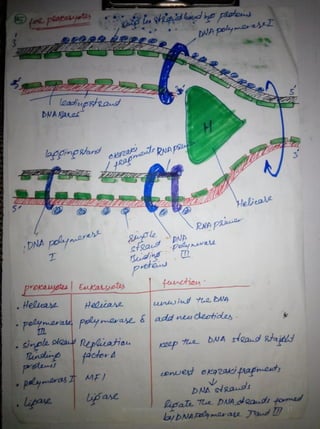 for prokaryotes
single strand binding proteins
DNA polymerase I
3'
5'
leading strand
DNA Bases
lagging strand
okazaki fragments
RNA primer
H
Helicase
3'
5'
RNA primer
DNA polymerase I
single strand binding proteins
DNA polymerase III
prokaryotes Eukaryotes function
• Helicase Helicase unwind the DNA
• polymerase III polymerase δ add nucleotides
• single strand binding proteins Replication factor A keep the DNA strand
• polymeras I MF1 convert okazaki fragments
↓
DNA strands
• ligase ligase ligate the DNA strands formed
by DNA polymerase I and III